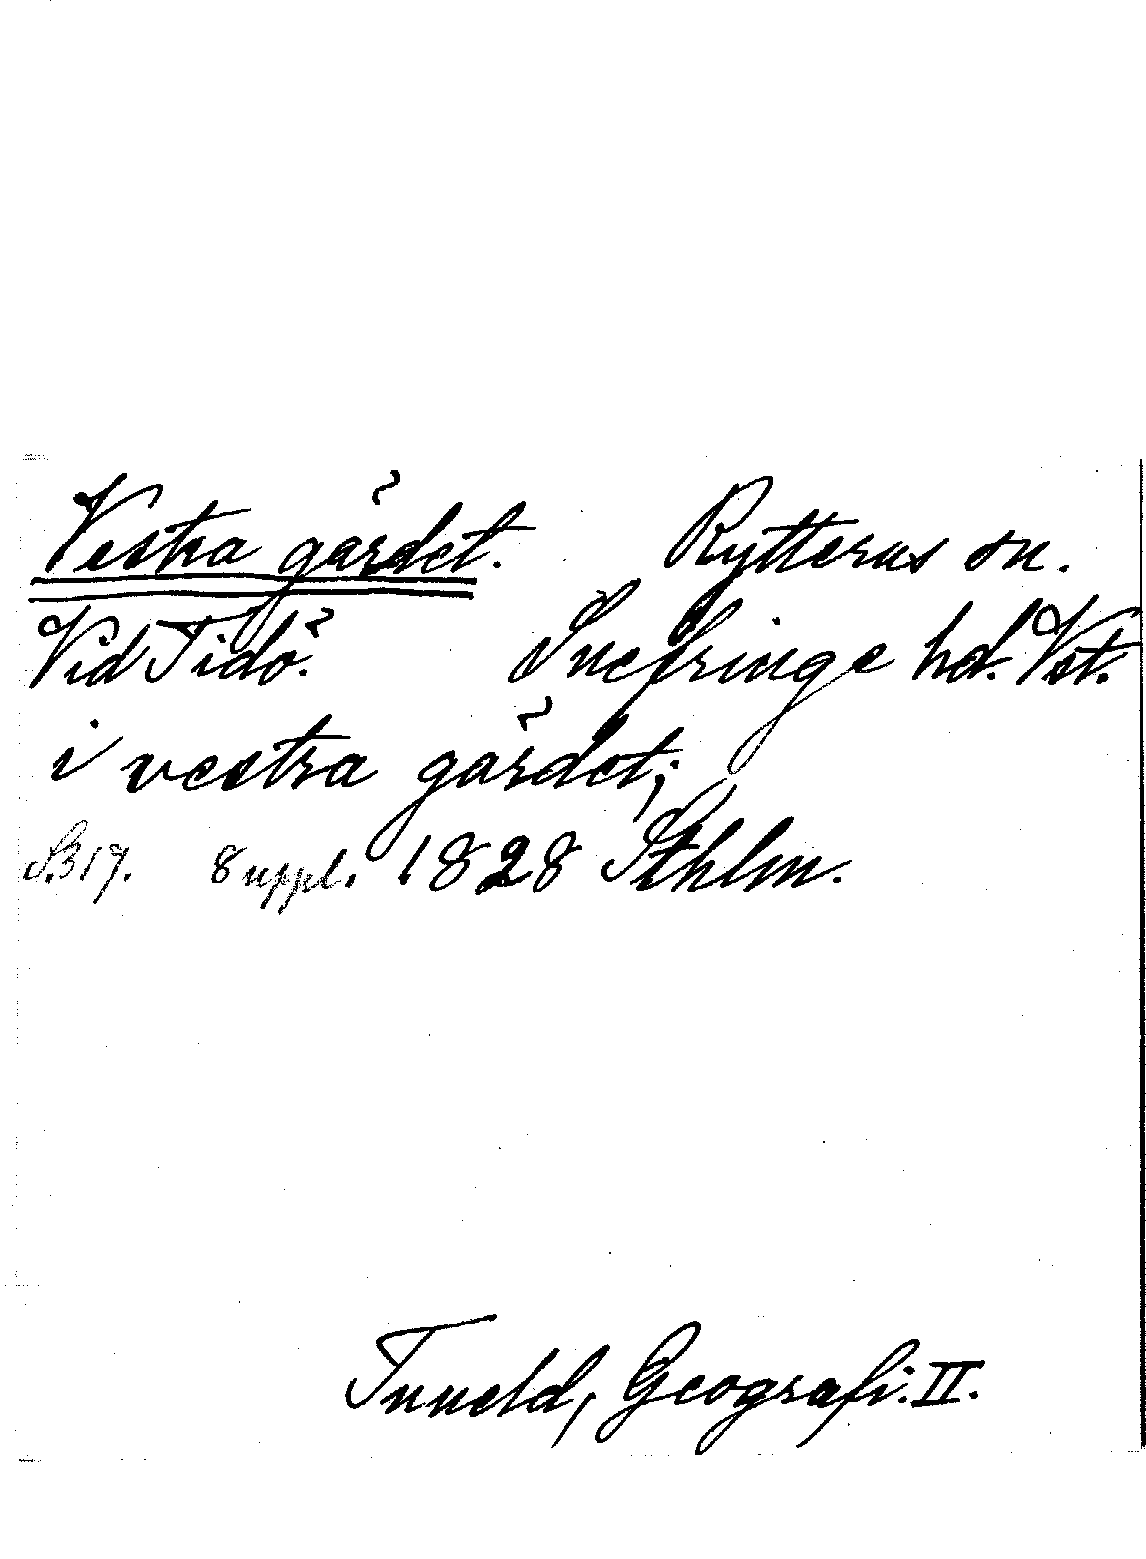 Vestra gärdet. Rytterns sn.
Vid Tidö. Snefringe hd. Vst.
i vestra gärdet;
S.317. 8 uppl. 1828 Sthlm.
Tuneld, Geografi. II.